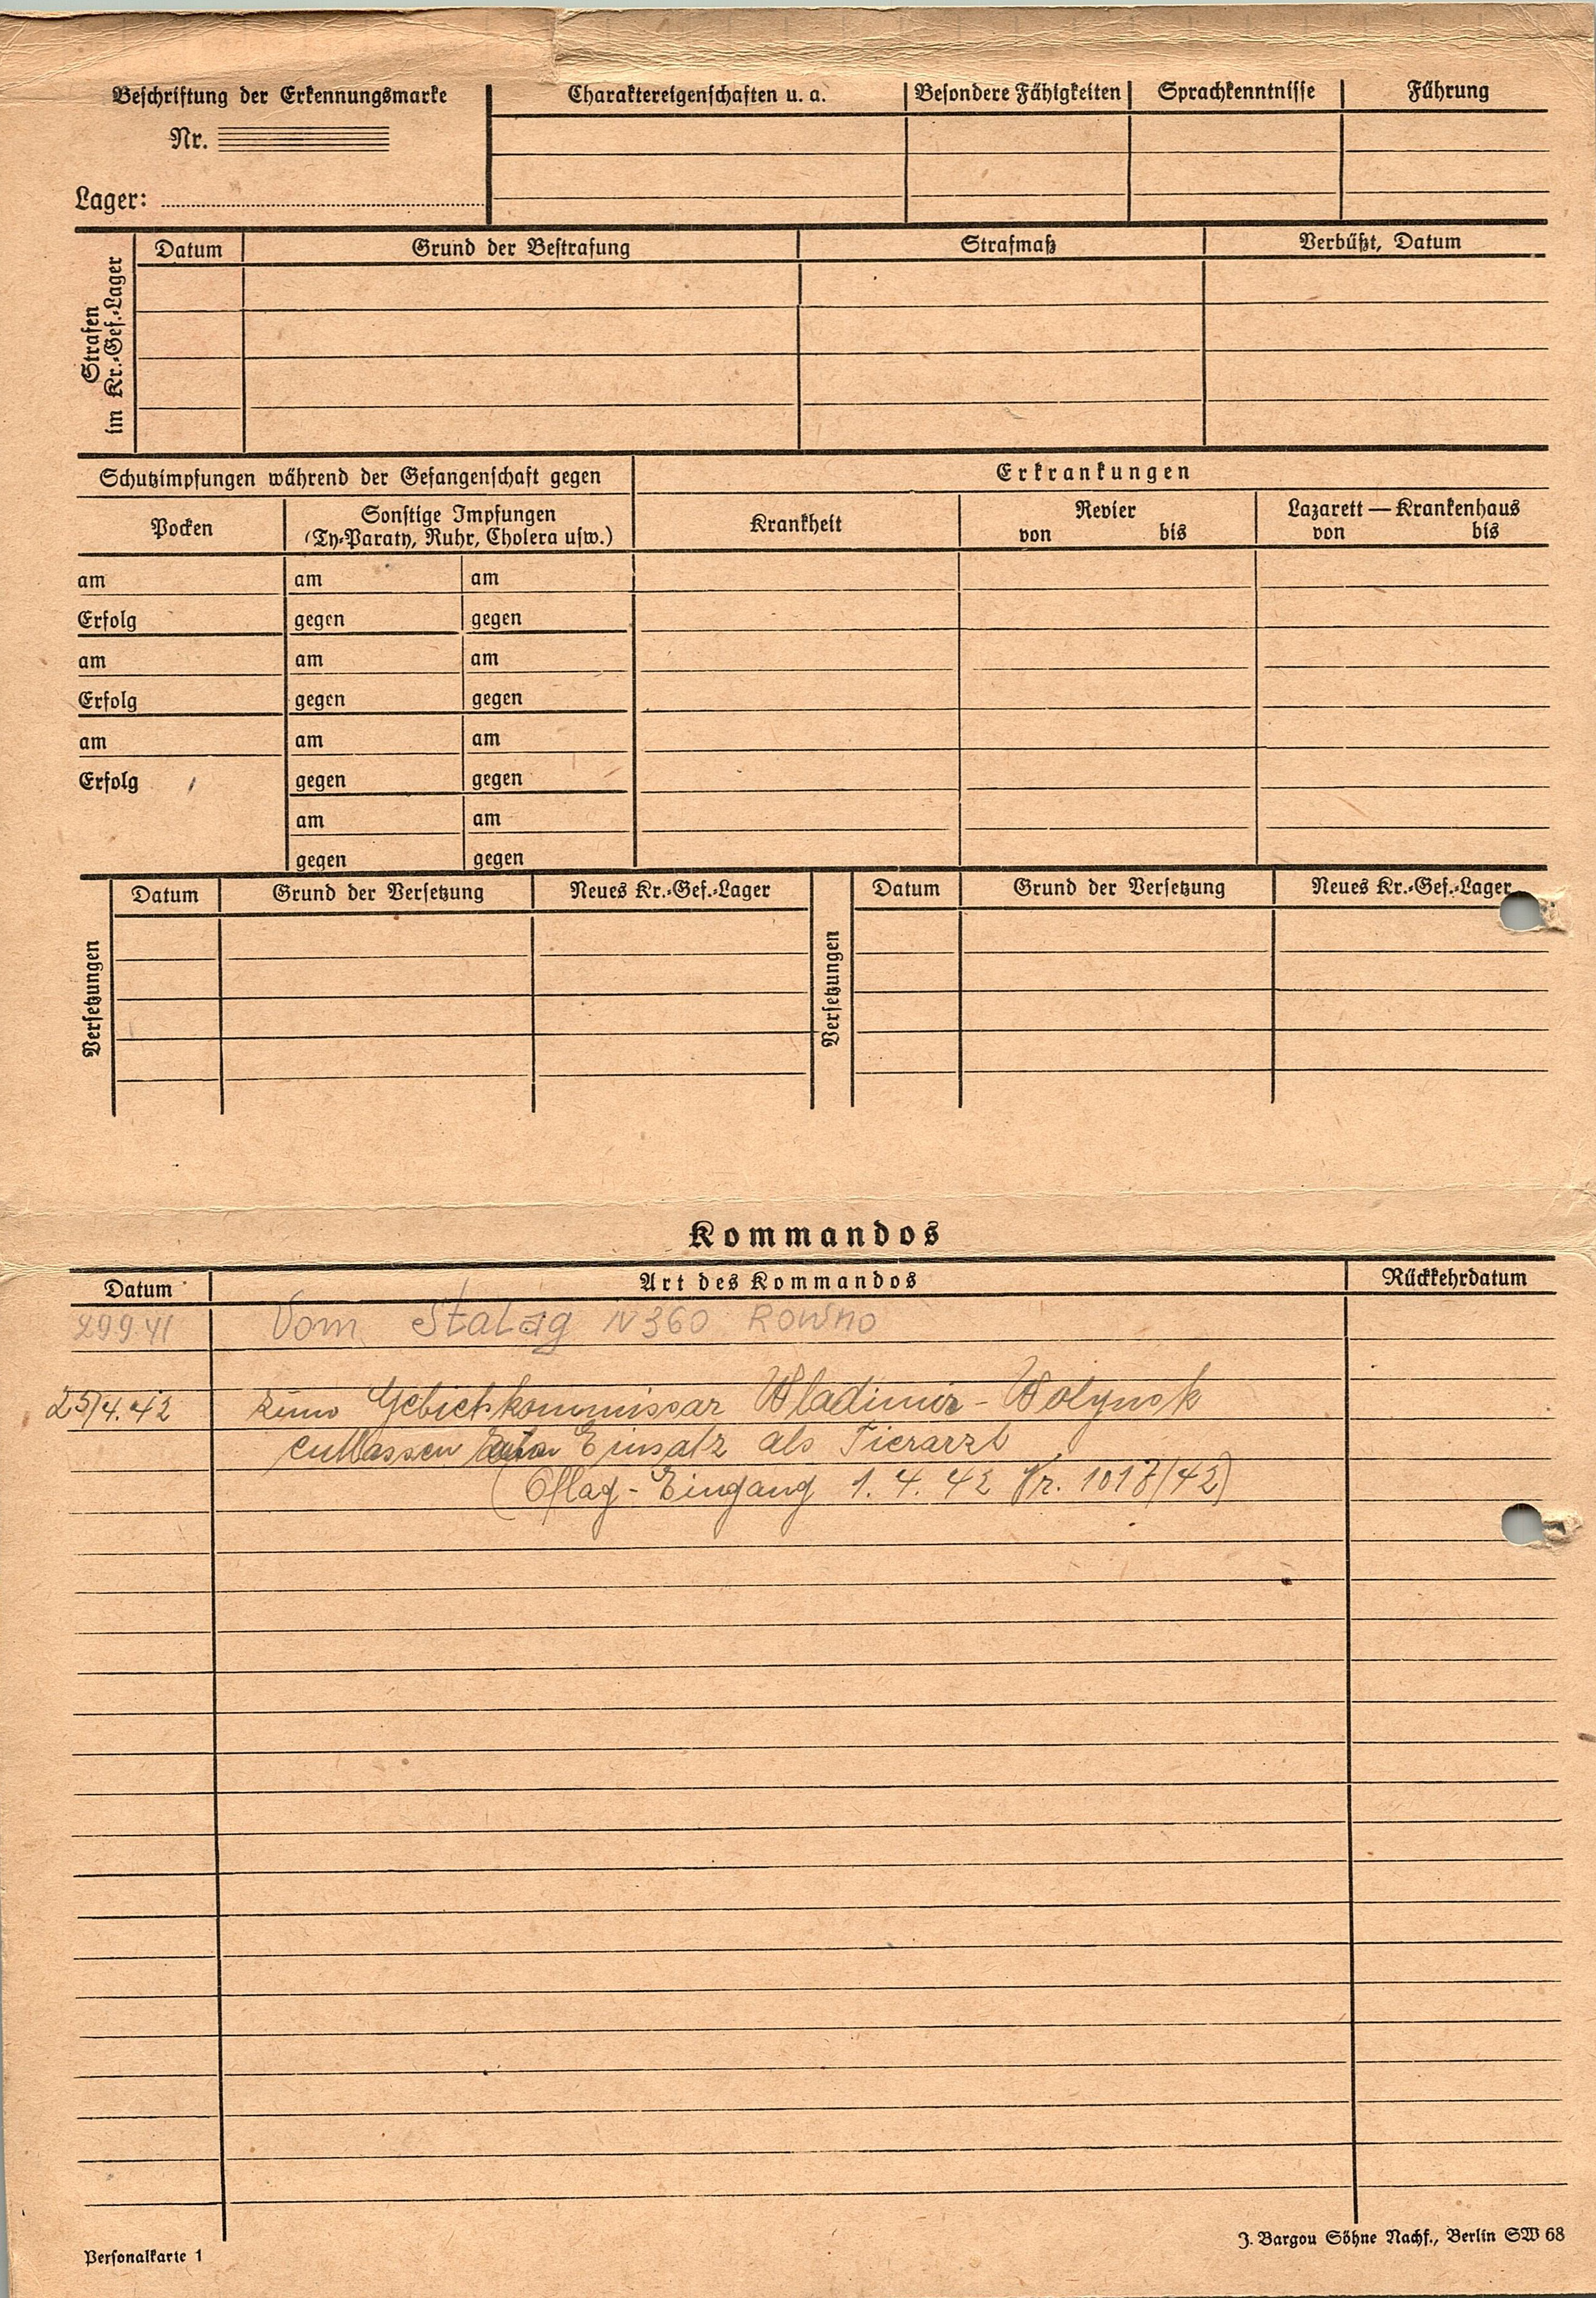 Beschriftung der Erkennungsmarke
Nr.
Lager:
Charaktereigenschaften u. a.
Besondere Fähigkeiten
Sprachkenntnisse
Führung
Strafen
im Kr.-Gef.-Lager
Datum
Grund der Bestrafung
Strafmaß
Verbüßt, Datum
Schutzimpfungen während der Gefangenschaft gegen
Erkrankungen
Pocken
Sonstige Impfungen
(Ty-Paraty, Ruhr, Cholera usw.)
Krankheit
Revier
von bis
Lazarett — Krankenhaus
von bis
am am am
Erfolg gegen gegen
am am am
Erfolg gegen gegen
am am am
Erfolg gegen gegen
am am
gegen gegen
Versetzungen
Datum
Grund der Versetzung
Neues Kr.-Gef.-Lager
Versetzungen
Datum
Grund der Versetzung
Neues Kr.-Gef.-Lager
Kommandos
Datum
Art des Kommandos
Rückkehrdatum
29941 Vom Stalag N 360 Rowno
25/4.42 zum Gebietskommissar Wladimir-Wolynsk
entlassen Einsatz als Tierarzt
(Oflag-Eingang 1. 4. 42 Nr. 1017/42)
Personalkarte 1
J. Bargou Söhne Nachf., Berlin SW 68